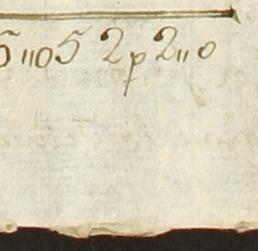 5"05 2p 2"0